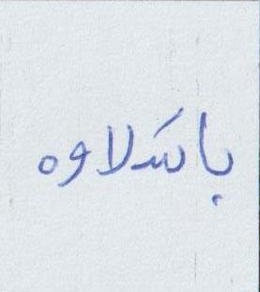 باسلاوه